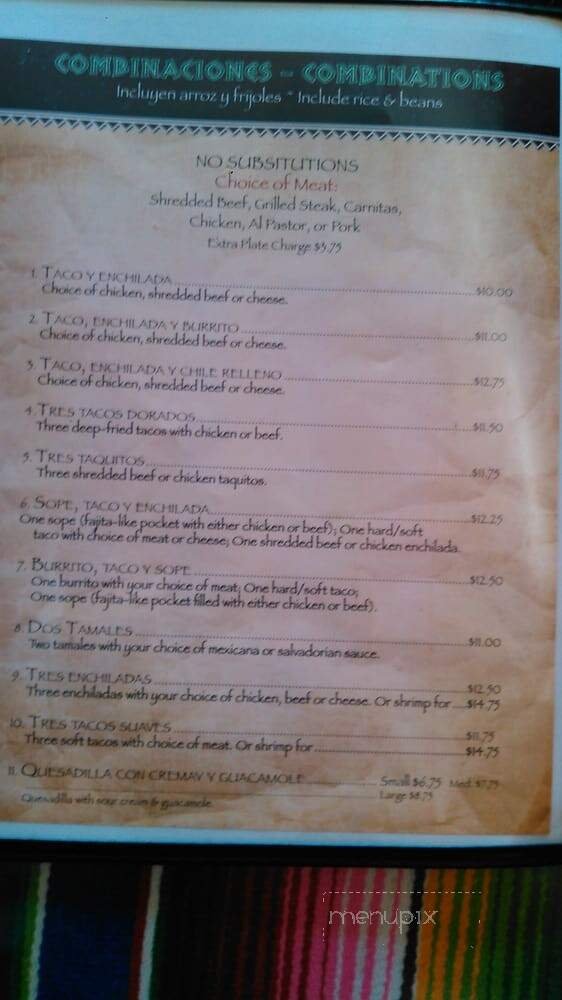 COMBINACIONES - COMBINATIONS
Incluyen arroz y frijoles ~ Include rice & beans
NO SUBSITUTIONS
Choice of Meat:
Shredded Beef, Grilled Steak, Carnitas,
Chicken, Al Pastor, or Pork
Extra Plate Charge $3.75
1. TACO Y ENCHILADA $10.00
Choice of chicken, shredded beef or cheese.
2. TACO, ENCHILADA Y BURRITO $11.00
Choice of chicken, shredded beef or cheese.
3. TACO, ENCHILADA Y CHILE RELLENO $12.75
Choice of chicken, shredded beef or cheese.
4. TRES TACOS DORADOS $11.50
Three deep-fried tacos with chicken or beef.
5. TRES TAQUITOS $11.75
Three shredded beef or chicken taquitos.
6. SOPE, TACO Y ENCHILADA $12.25
One sope (fajita-like pocket with either chicken or beef); One hard/soft
taco with choice of meat or cheese; One shredded beef or chicken enchilada.
7. BURRITO, TACO Y SOPE $12.50
One burrito with your choice of meat; One hard/soft taco;
One sope (fajita-like pocket filled with either chicken or beef).
8. DOS TAMALES $11.00
Two tamales with your choice of mexicana or salvadorian sauce.
9. TRES ENCHILADAS $12.50
Three enchiladas with your choice of chicken, beef or cheese. Or shrimp for $14.75
10. TRES TACOS SUAVES $11.75
Three soft tacos with choice of meat. Or shrimp for $14.75
11. QUESADILLA CON CREMAY Y GUACAMOLE Small $6.75 Med. $7.75
Large $8.75
Quesadilla with sour cream & guacamole.
menupix